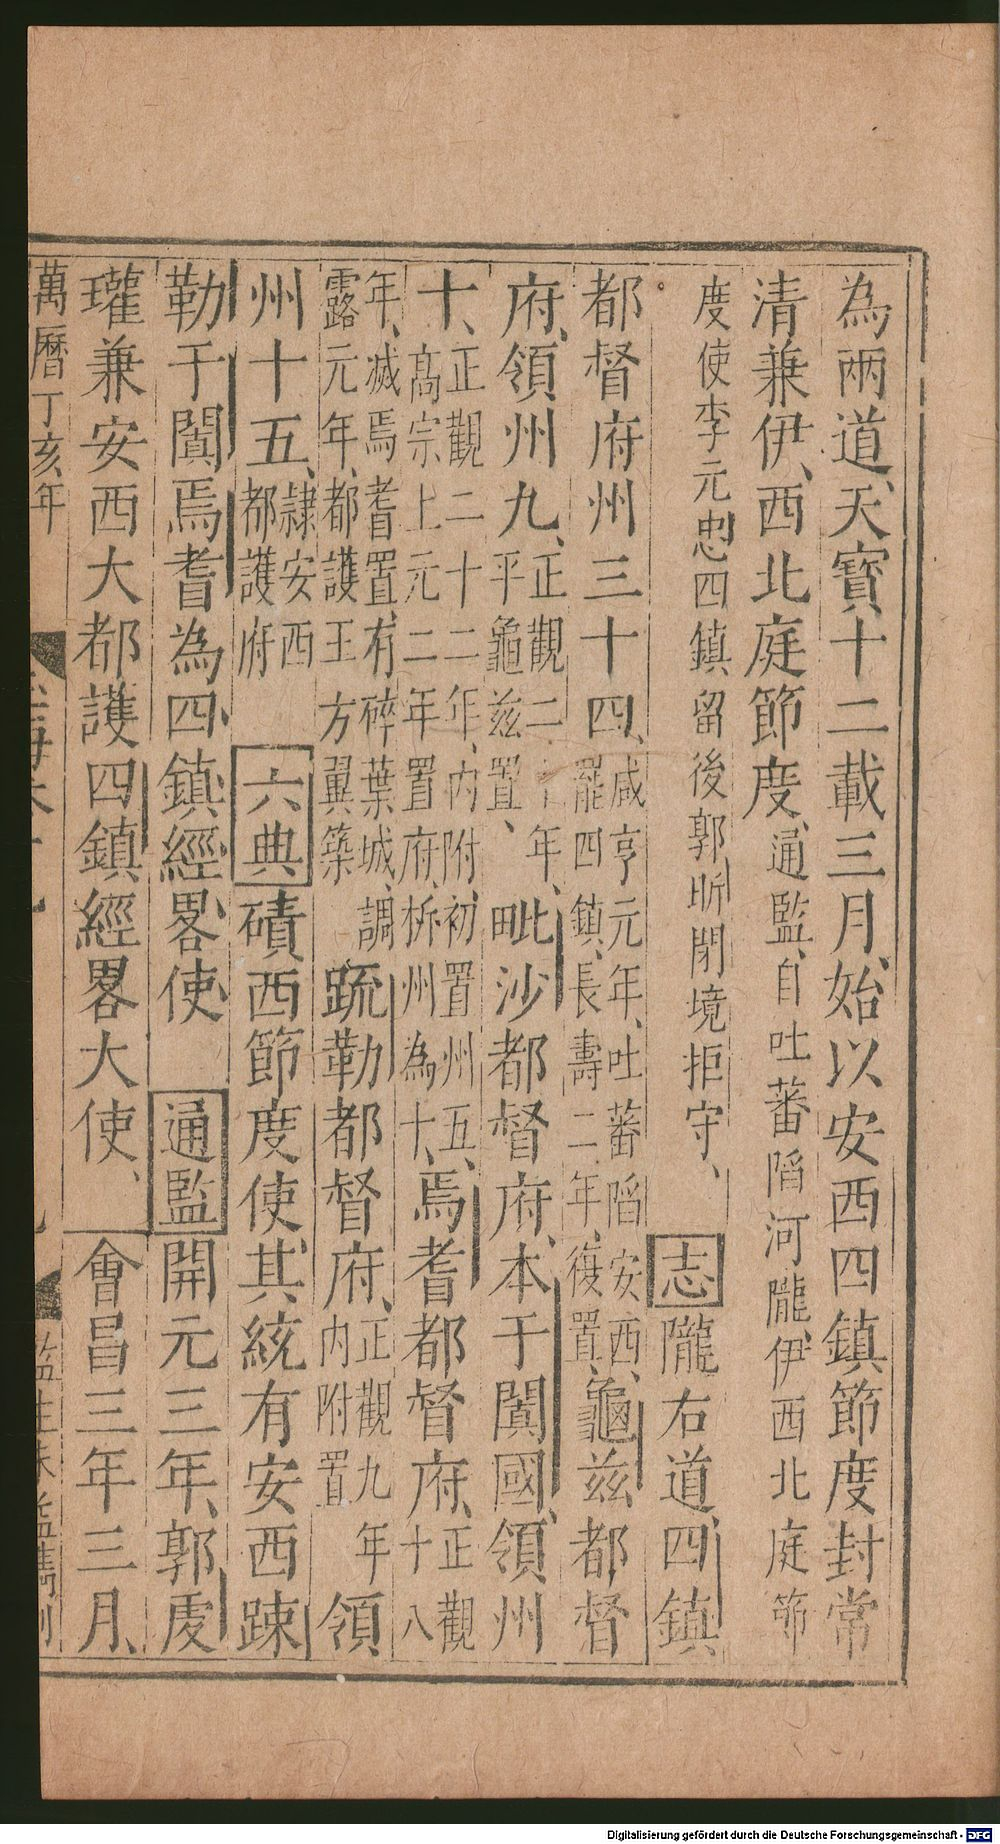 為兩道、天寶十二載三月、始以安西四鎮節度封常
清兼伊、西北庭節度、通監、自吐蕃陷河隴、伊西北庭節
度使李元忠四鎮留後郭昕閉境拒守、
志隴右道、四鎮
都督府州三十四、咸亨元年、吐蕃陷安西、罷四鎮、長壽二年、復置、龜茲都督
府、領州九、正觀二十年、平龜茲置、毗沙都督府、本于闐國、領州
十、正觀二十二年、內附、初置州五、高宗上元二年置府、析州為十、焉耆都督府、正觀十八
年、滅焉耆置、有碎葉城、調露元年、都護王方翼築疏勒都督府、正觀九年內附置領
州十五、隸安西都護府 六典磧西節度使、其統有安西疎
勒于闐焉耆為四鎮經畧使 通監開元三年、郭虔
瓘兼安西大都護四鎮經畧大使、會昌三年三月、
萬曆丁亥年
Digitalisierung gefördert durch die Deutsche Forschungsgemeinschaft - DFG